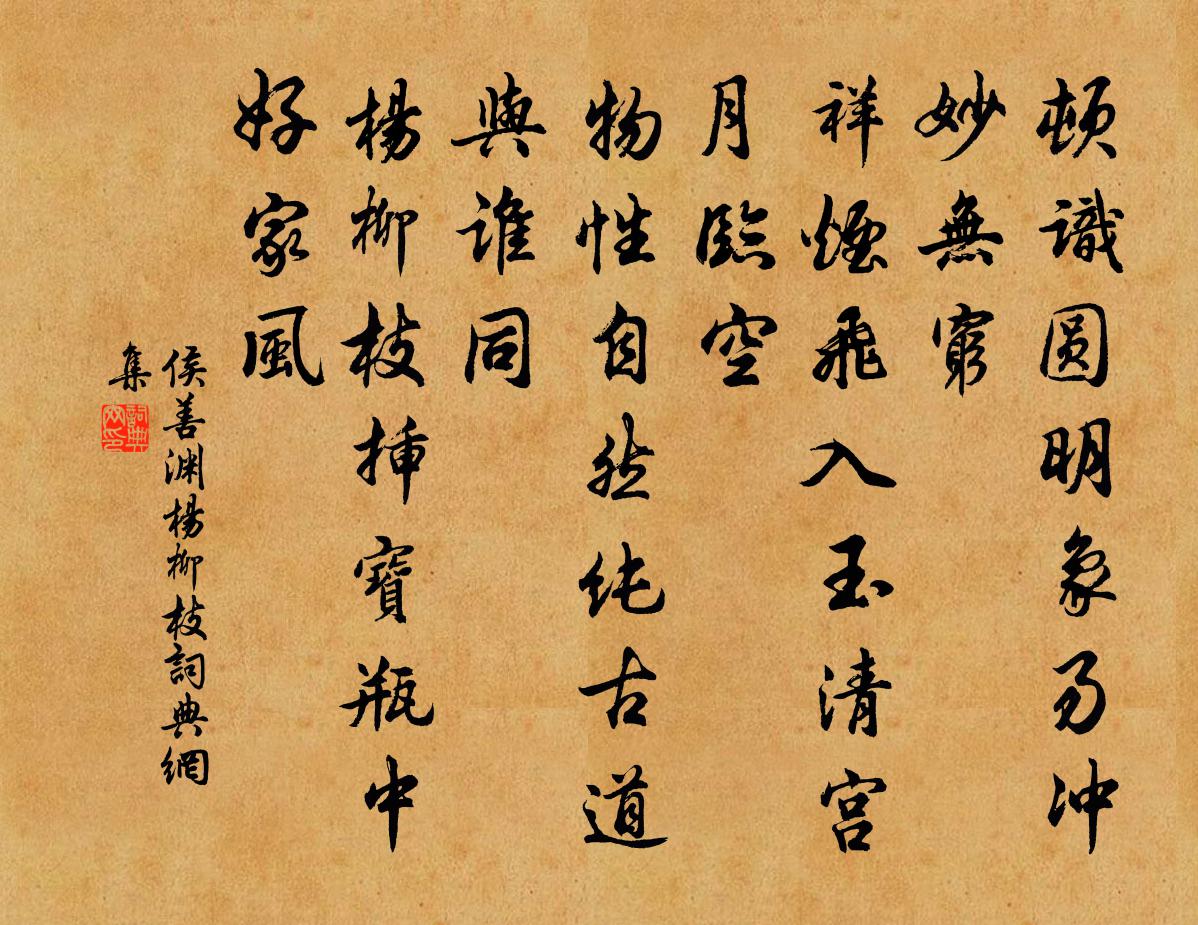 頓識圓明象冲
妙無窮
祥煙飛入玉清宮
月臨空
物性自然純古道
與誰同
楊柳枝插寶瓶中
好家風
侯善渊楊柳枝詞典網
集
詞典
网印